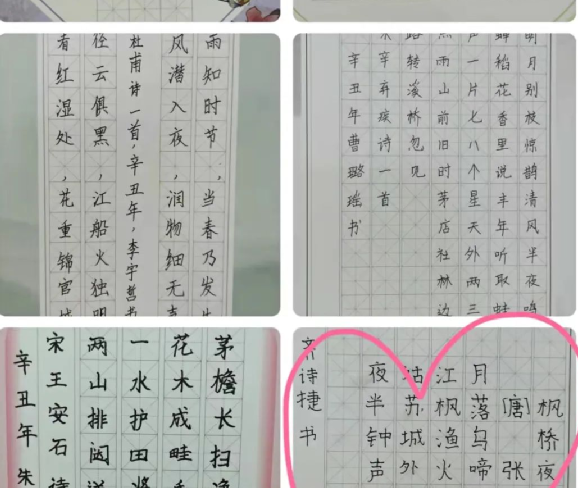 雨知时节，当春乃发生
风潜入夜，润物细无声
杜甫诗一首，辛丑年，李宇哲书
径云俱黑，江船火独明
看红湿处，花重锦官城
明月别枝惊鹊清风半夜鸣
蝉稻花香里说丰年听取蛙
声一片七八个星天外两三
点雨山前旧时茅店社林边
路转溪桥忽见
宋辛弃疾诗一首
辛丑年曹璐瑶书
茅檐长扫净
花木成畦手
一水护田将
两山排闼送
宋王安石诗
辛丑年朱
枫桥夜
[唐]张
月落乌啼
江枫渔火
姑苏城外
夜半钟声
齐诗捷书